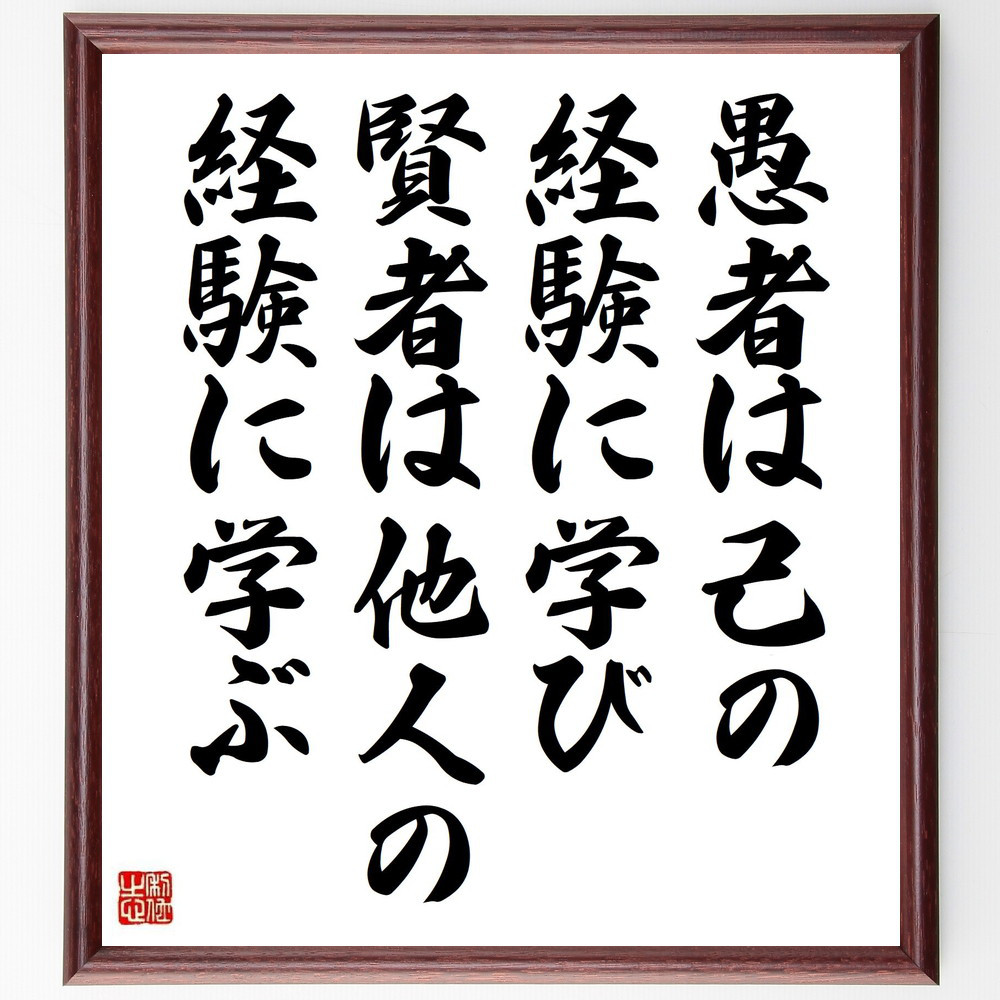 愚者は己の
経験に学び
賢者は他人の
経験に学ぶ